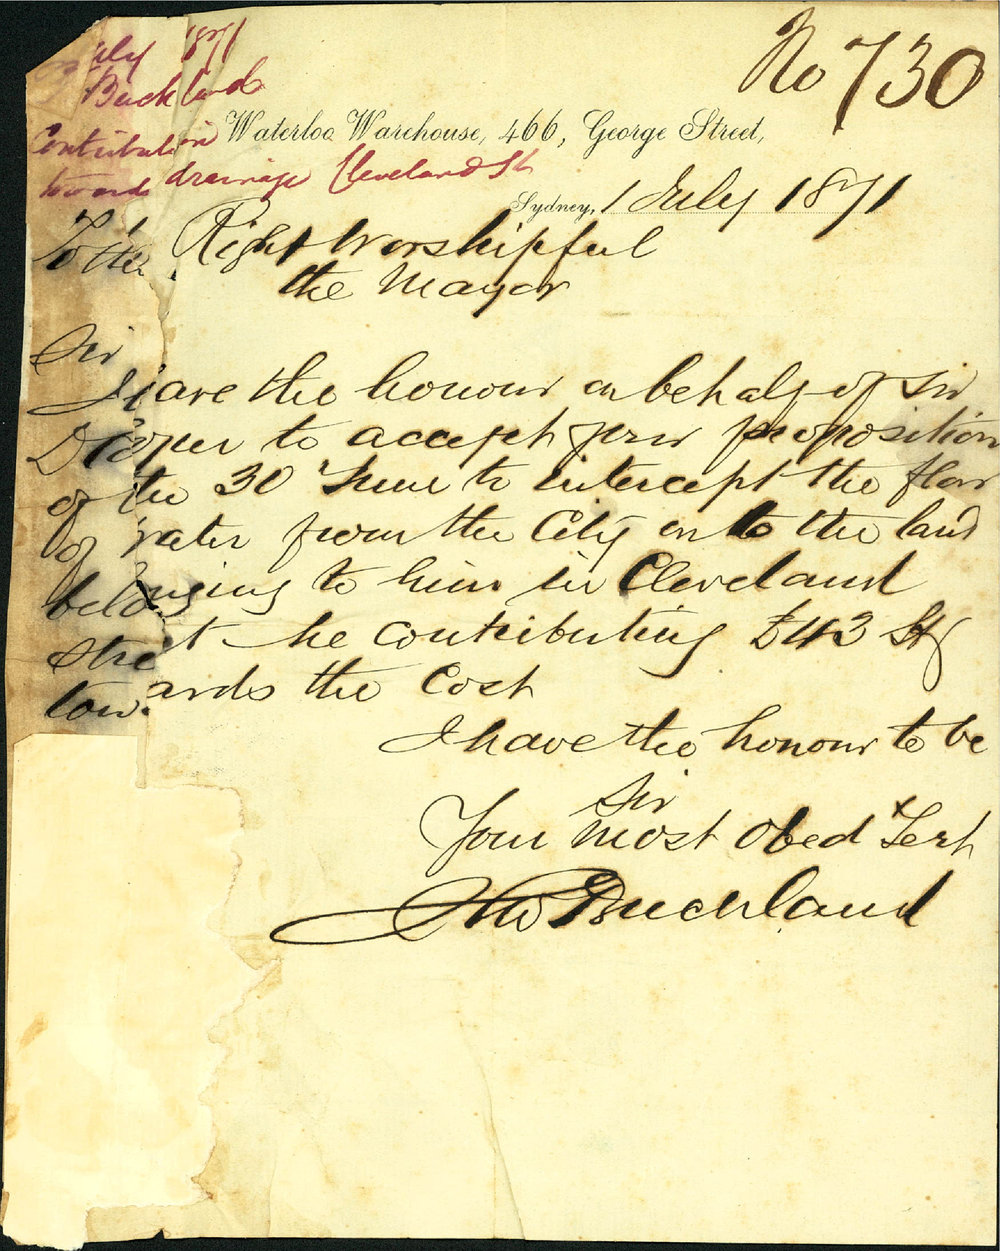 July 1871
Buckland
Contribution
towards drainage Cleveland St
No 730
Waterloo Warehouse, 466, George Street,
Sydney, 1 July 1871
To the Right Worshipful
the Mayor
Sir
I have the honour on behalf of Sir
D Cooper to accept your proposition
of the 30 June to intercept the flow
of water from the City on to the land
belonging to him in Cleveland
street he contributing £43 Stg
towards the Cost
I have the honour to be
Sir
Your most Obed Servt
Jno Buckland